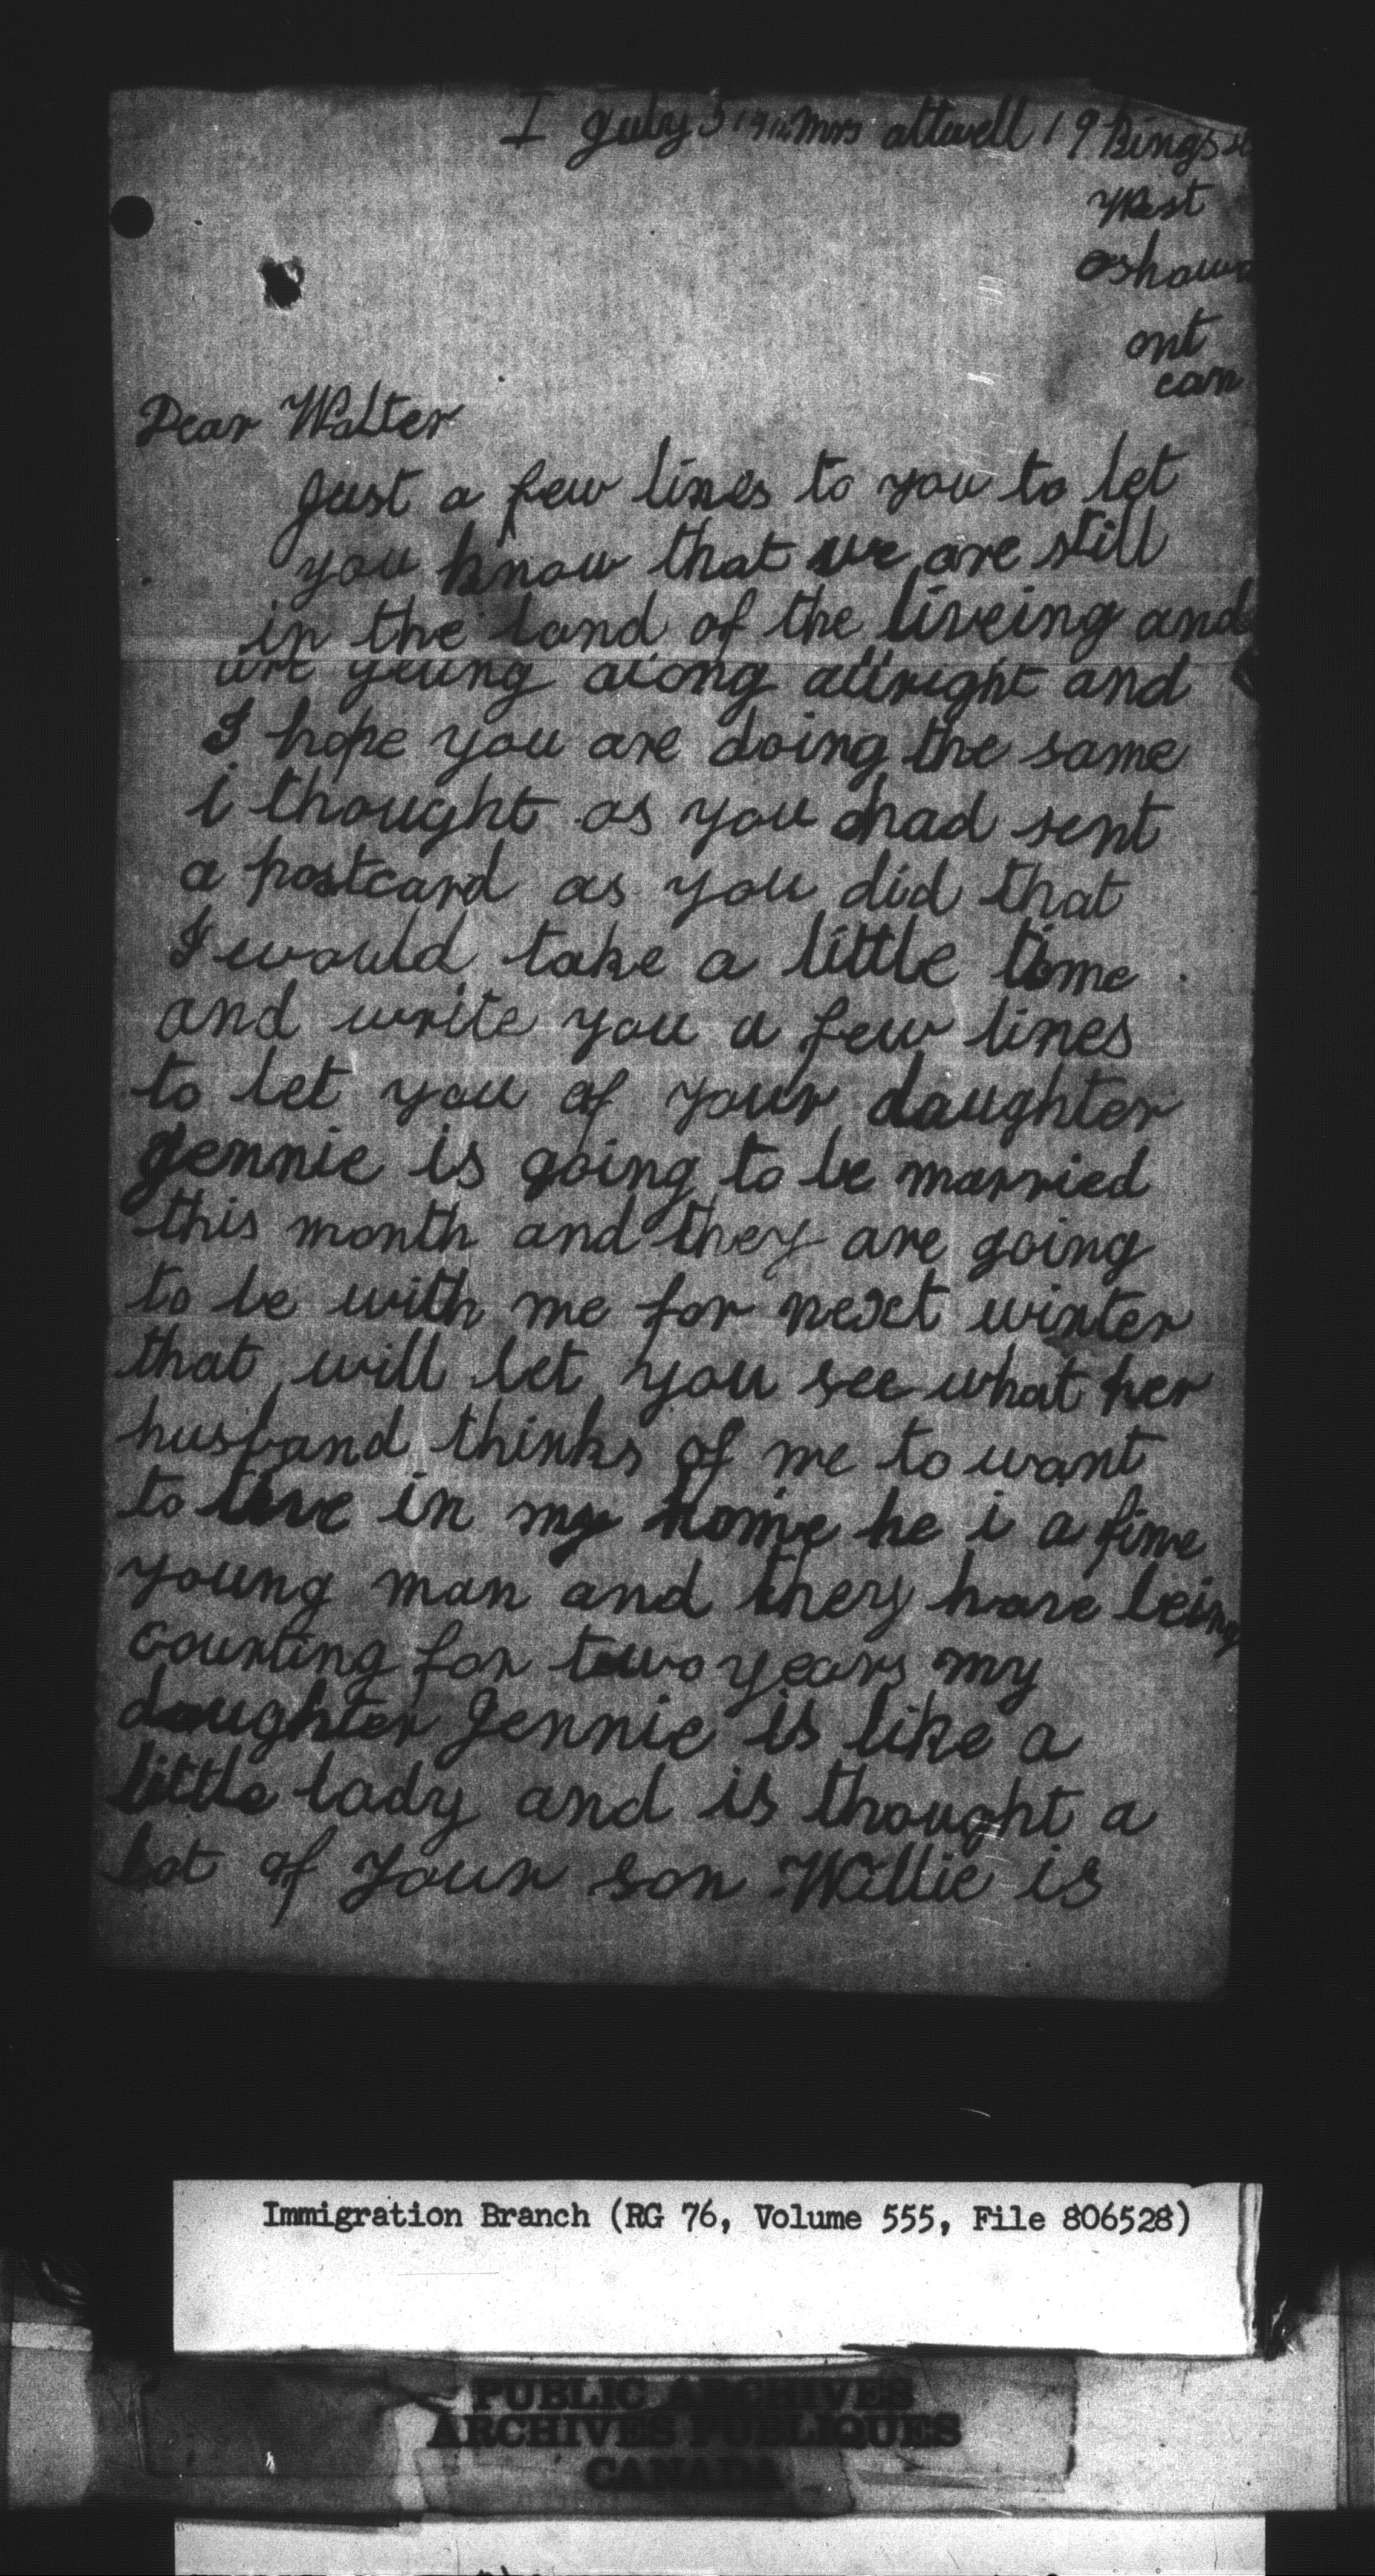 I July 5 1912 Mrs attwell 19 Kings st
West
oshawa
ont
can
Dear Walter
Just a few lines to you to let
you know that we are still
in the land of the liveing and
are geting along allright and
I hope you are doing the same
i thought as you had sent
a postcard as you did that
I would take a little time
and write you a few lines
to let you of your daughter
Jennie is going to be married
this month and they are going
to be with me for next winter
that will let you see what her
husband thinks of me to want
to live in my home he i a fine
young man and they have being
courting for two years my
daughter Jennie is like a
little lady and is thought a
lot of your son Willie is
Immigration Branch (RG 76, Volume 555, File 806528)
PUBLIC ARCHIVES
ARCHIVES PUBLIQUES
CANADA